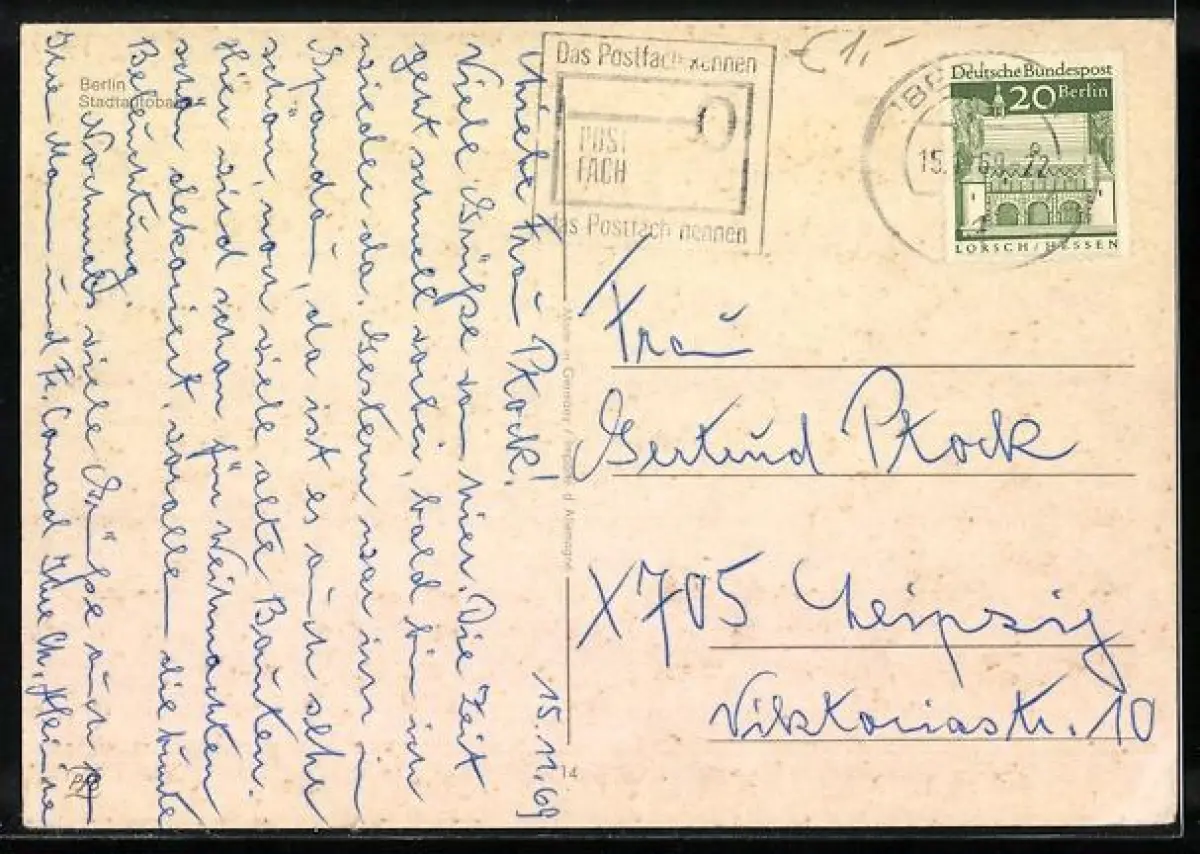 Berlin
Stadtautobahn
Das Postfach kennen
POST
FACH
das Postfach nennen
€ 1,-
15. 69. 22
1
Deutsche Bundespost
20 Berlin
LORSCH / HESSEN
15.11.69
Liebe Frau Ptock!
Viele Grüße von hier. Die Zeit
geht schnell vorbei, bald bin ich
wieder da. Gestern war ich in
Spandau, da ist es auch sehr
schön, noch viele alte Bauten.
Hier wird schon für Weihnachten
schön dekoriert, vor alle die bunte
Beleuchtung.
Nochmals viele Grüße auch an
Ihre Mam und Fr. Conrad Ihre Ch. Heinze
Frau
Gertrud Ptock
X705 Leipzig
Viktoriastr. 10
Made in Germany / Importé d'Allemagne
14